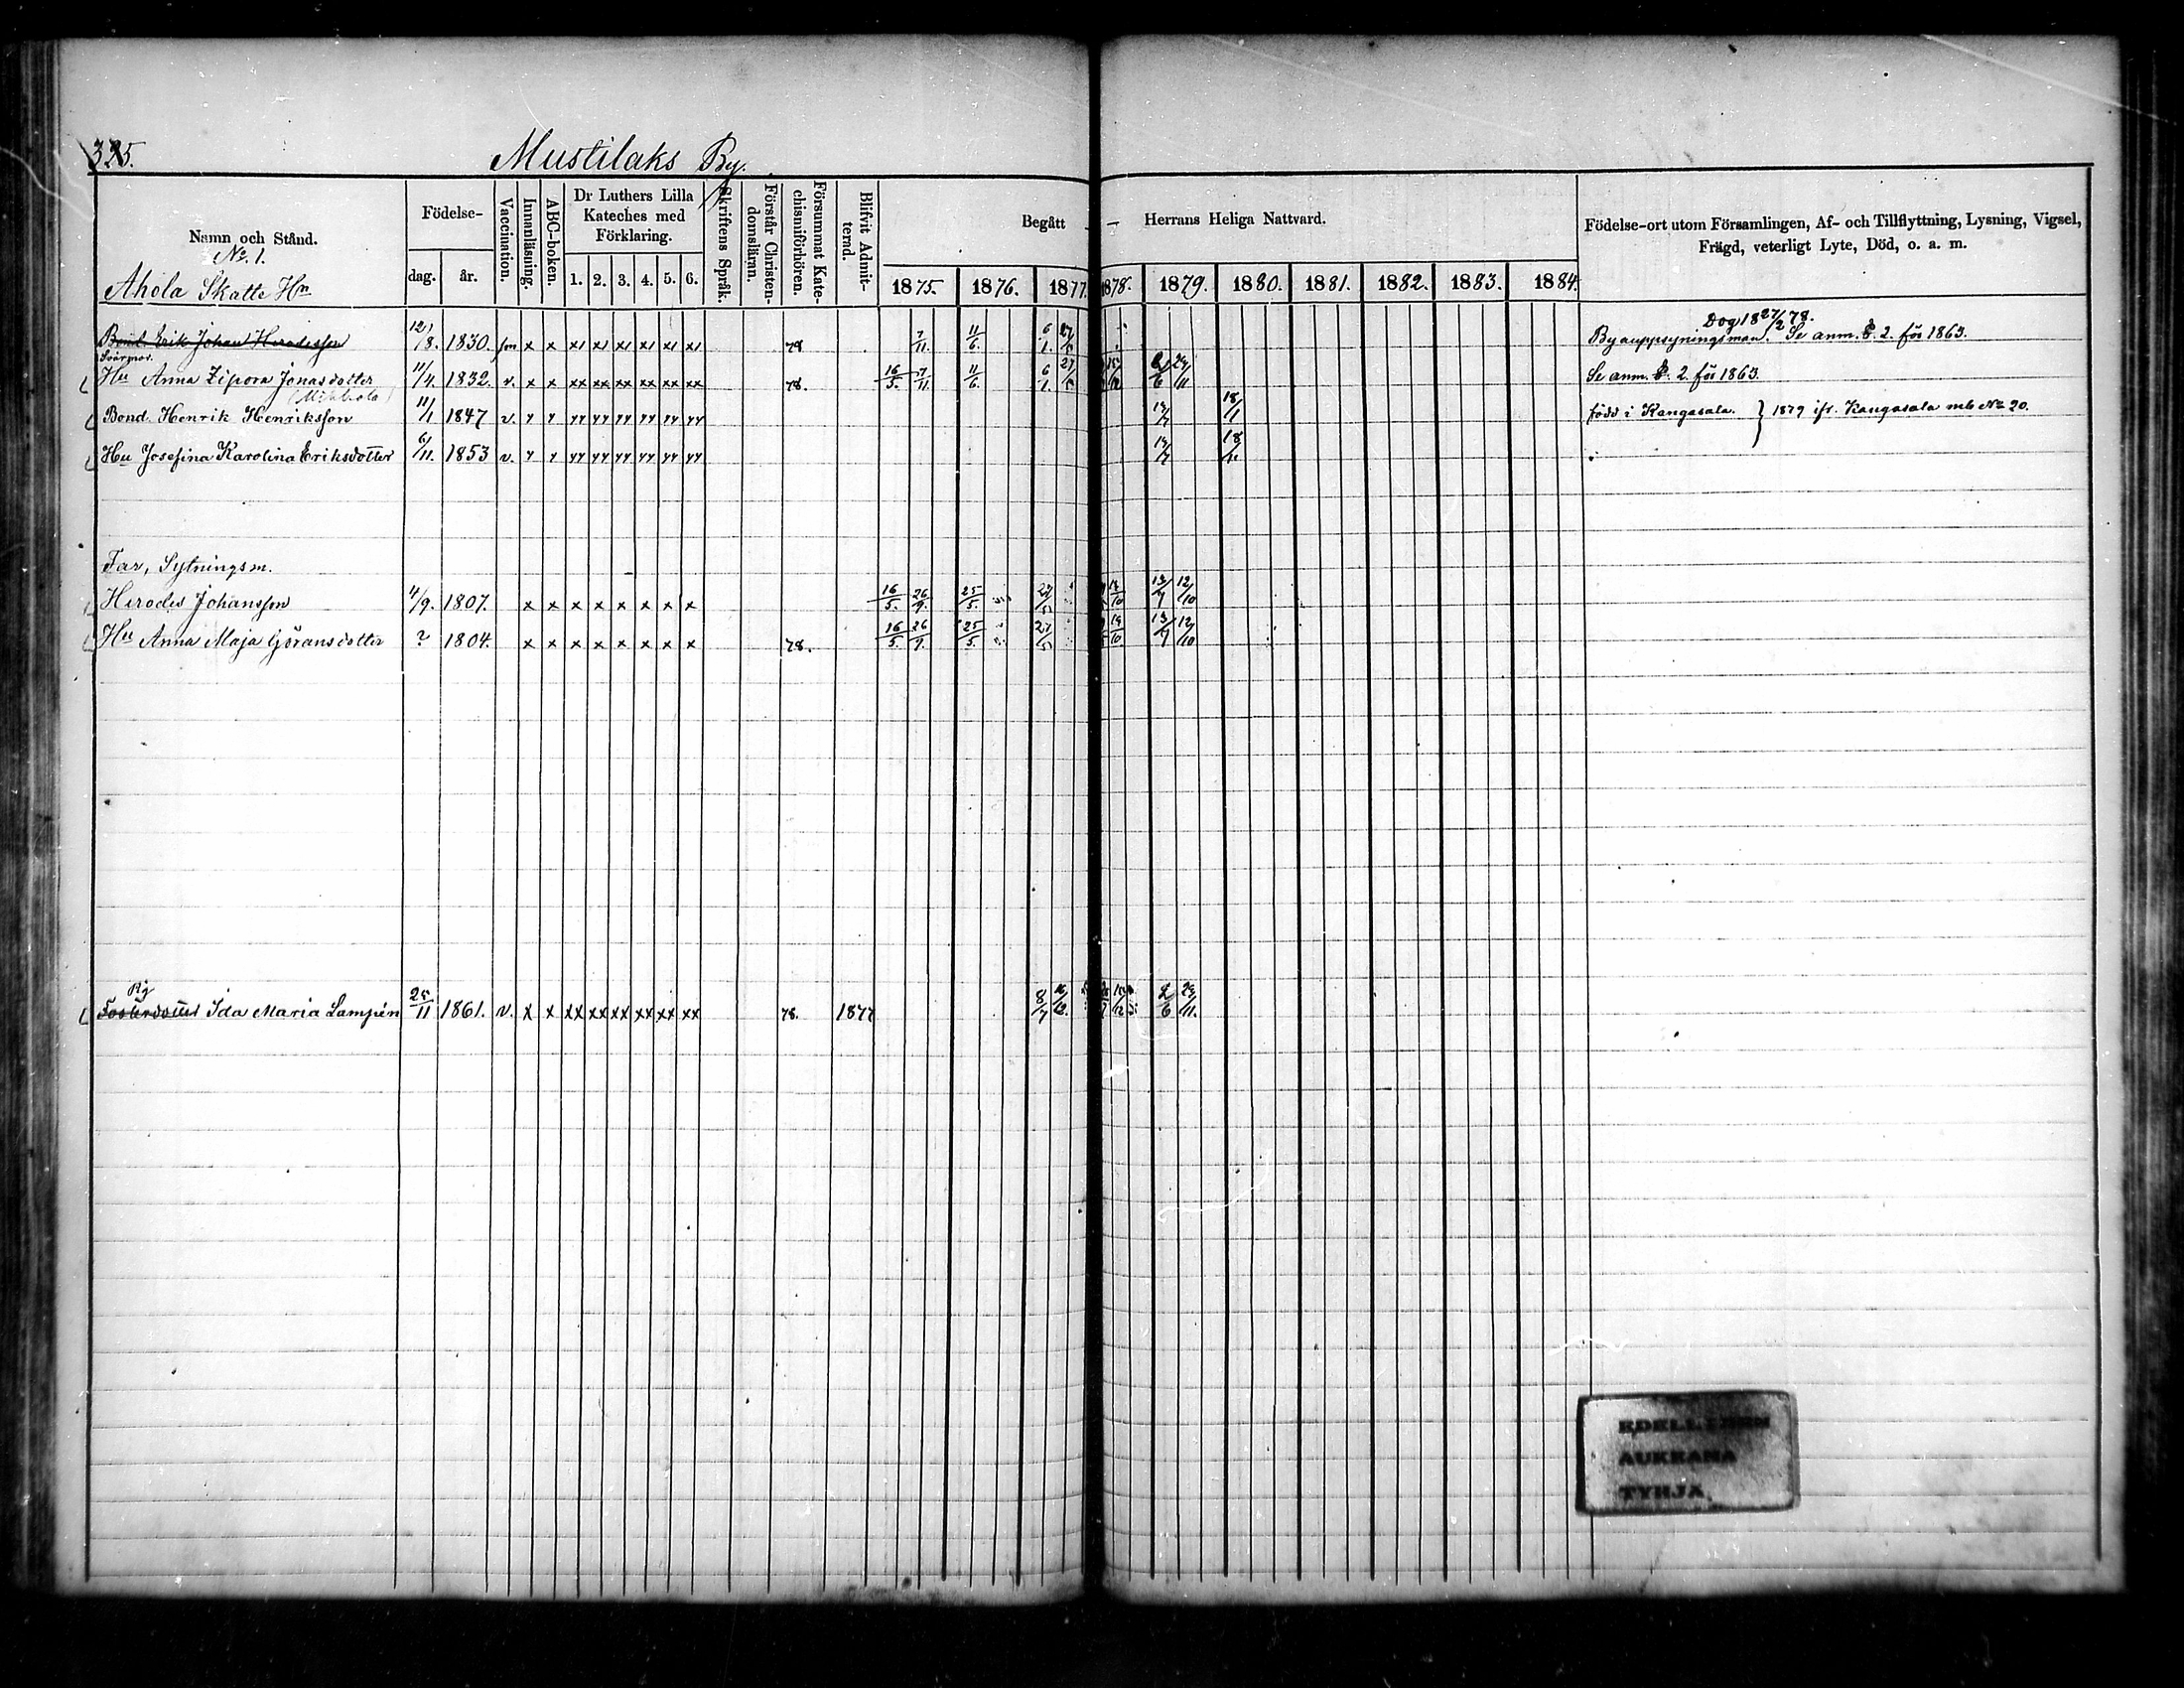 325.
Mustilaks By.
Namn och Stånd.
No. 1.
Ahola Skatte Hn
Födelse-
dag. år.
Vaccination.
Innanläsning.
ABC-boken.
Dr Luthers Lilla Kateches med Förklaring.
1. 2. 3. 4. 5. 6.
Skriftens Språk.
Förstår Christen-domsläran.
Försummat Kate-chismiförhören.
Blifvit Admit-terad.
Begått Herrans Heliga Nattvard.
1875. 1876. 1877. 1878. 1879. 1880. 1881. 1882. 1883. 1884.
Födelse-ort utom Församlingen, Af- och Tillflyttning, Lysning, Vigsel,
Frägd, veterligt Lyte, Död, o. a. m.
Dog 18 27/2 78.
Bond. Erik Johan Herodesson 12/8. 1830. x x x1 x1 x1 x1 x1 x1 78 7/11. 11/6. 6/1. Byauppsyningsman. Se anm. 2. för 1863.
Svärmor.
Hu Anna Zipora Jonasdotter 11/4. 1832. v. x x xx xx xx xx xx xx 78. 16/5. 7/11. 11/6. 6/1. Se anm. 2. för 1863.
Bond. Henrik Henriksson 11/1 1847 v. 18/1 född i Kangasala. } 1879 ifr. Kangasala mb No 20.
Hu Josefina Karolina Eriksdotter 6/11. 1853 v.
Far, Sytningsm.
Herodes Johansson 4/9. 1807. x x x x x x x x 16/5. 26/9. 25/5. 13/7 12/10
Hu Anna Maja Göransdotter ? 1804. x x x x x x x x 78. 16/5. 26/9. 25/5. 27/5 13/7 12/10
Pig
Fosterdotter Ida Maria Lampén 25/11 1861. v. x x xx xx xx xx xx xx 78. 1877 8/7 2/6
EDELLINEN
AUKEAMA
TYHJÄ